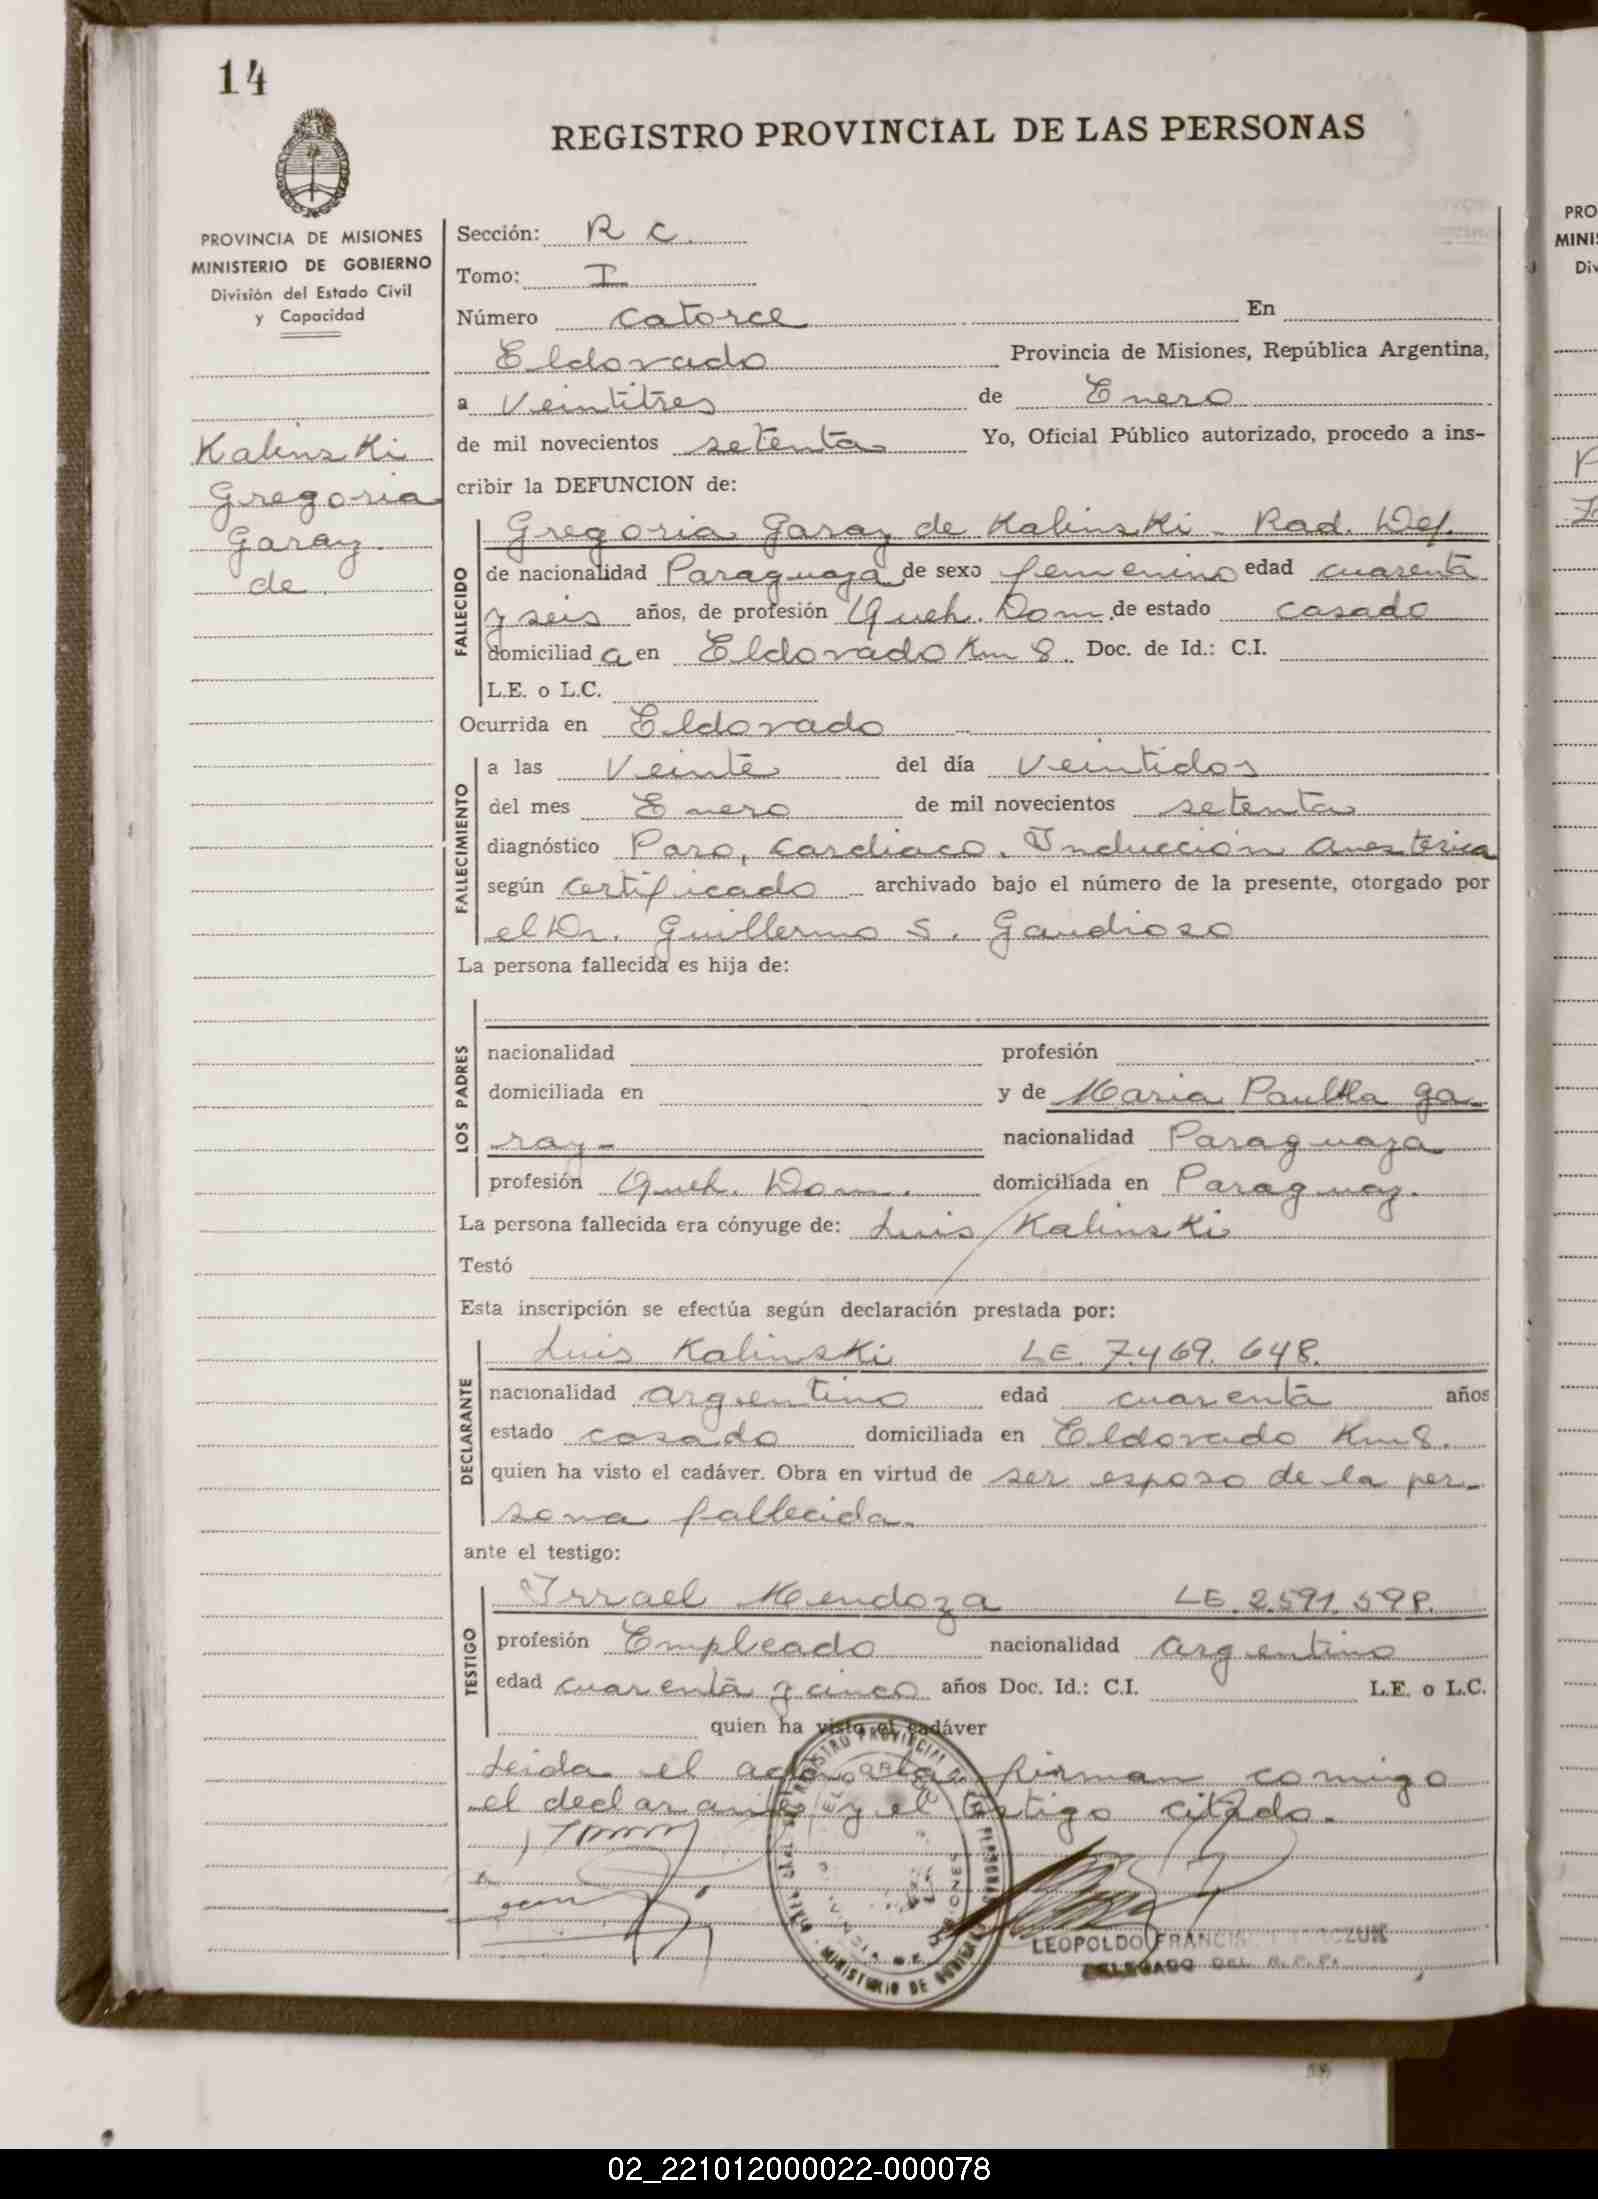 14
REGISTRO PROVINCIAL DE LAS PERSONAS
PROVINCIA DE MISIONES
MINISTERIO DE GOBIERNO
División del Estado Civil
y Capacidad
Kalinski
Gregoria
Garay
de
Sección: R C.
Tomo: I
Número catorce En
Eldorado Provincia de Misiones, República Argentina,
a Veintitres de Enero
de mil novecientos setenta Yo, Oficial Público autorizado, procedo a ins-
cribir la DEFUNCION de:
FALLECIDO
Gregoria Garay de Kalinski - Rad. Def.
de nacionalidad Paraguaya de sexo femenino edad cuarenta
y seis años, de profesión Queh. Dom. de estado casado
domiciliad a en Eldorado Km 8. Doc. de Id.: C.I.
L.E. o L.C.
Ocurrida en Eldorado
FALLECIMIENTO
a las Veinte del día Veintidos
del mes Enero de mil novecientos setenta
diagnóstico Paro, cardiaco. Inducción
según certificado archivado bajo el número de la presente, otorgado por
el Dr. Guillermo S. Gaudioso
La persona fallecida es hija de:
LOS PADRES
nacionalidad profesión
domiciliada en y de Maria Ga-
ray- nacionalidad Paraguaya
profesión Queh. Dom. domiciliada en Paraguay.
La persona fallecida era cónyuge de: Luis Kalinski
Testó
Esta inscripción se efectúa según declaración prestada por:
DECLARANTE
Luis Kalinski LE. 7.469.648.
nacionalidad argentino edad cuarenta años
estado casado domiciliada en Eldorado Km 8.
quien ha visto el cadáver. Obra en virtud de ser esposo de la per-
sona fallecida.
ante el testigo:
TESTIGO
Isrrael Mendoza LE. 2.591.598.
profesión Empleado nacionalidad argentino
edad cuarenta y cinco años Doc. Id.: C.I. L.E. o L.C.
quien ha visto el cadáver
Leida el acta, la firman comigo
el declarante y el testigo citado.
REGISTRO PROVINCIAL DE LAS PERSONAS
MINISTERIO DE GOBIERNO
MISIONES
LEOPOLDO
DELEGADO DEL R.P.P.
PRO
MINIS
Div
02_221012000022-000078